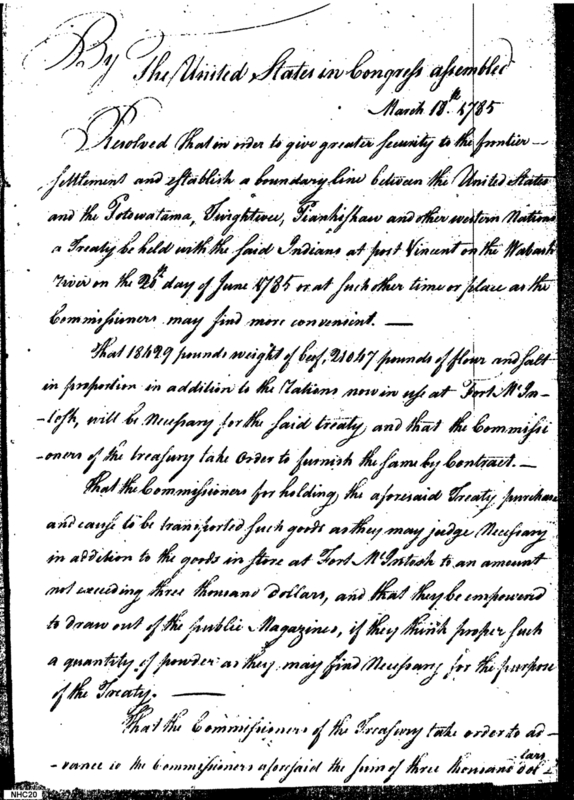 By
The United States in Congress assembled
March 18th. 1785
Resolved That in order to give greater security to the frontier
settlement and establish a boundary line between the United States
and the Potowatama, Twightwee, Piankishaw and other western Nations
a Treaty be held with the said Indians at post Vincent on the Wabash
river on the 20th day of June 1785 or at such other time or place as the
Commissioners may find more convenient. —
That 18429 pounds weight of beef, 21047 pounds of flour and salt
in proportion in addition to the rations now in use at Fort Mc In-
-tosh, will be necessary for the said treaty and that the Commissi
-oners of the treasury take Order to furnish the same by Contract. —
That the Commissioners for holding the aforesaid Treaty purchase
and cause to be transported such goods as they may judge Necessary
in addition to the goods in store at Fort Mc Intosh to an amount
not exceeding three thousand dollars, and that they be empowered
to draw out of the public Magazines, if they think proper such
a quantity of powder as they may find Necessary for the purpose
of the Treaty. —
That the Commissioners of the Treasury take order to ad-
-vance to the Commissioners aforesaid the sum of three thousand dol-
lars
NHC20